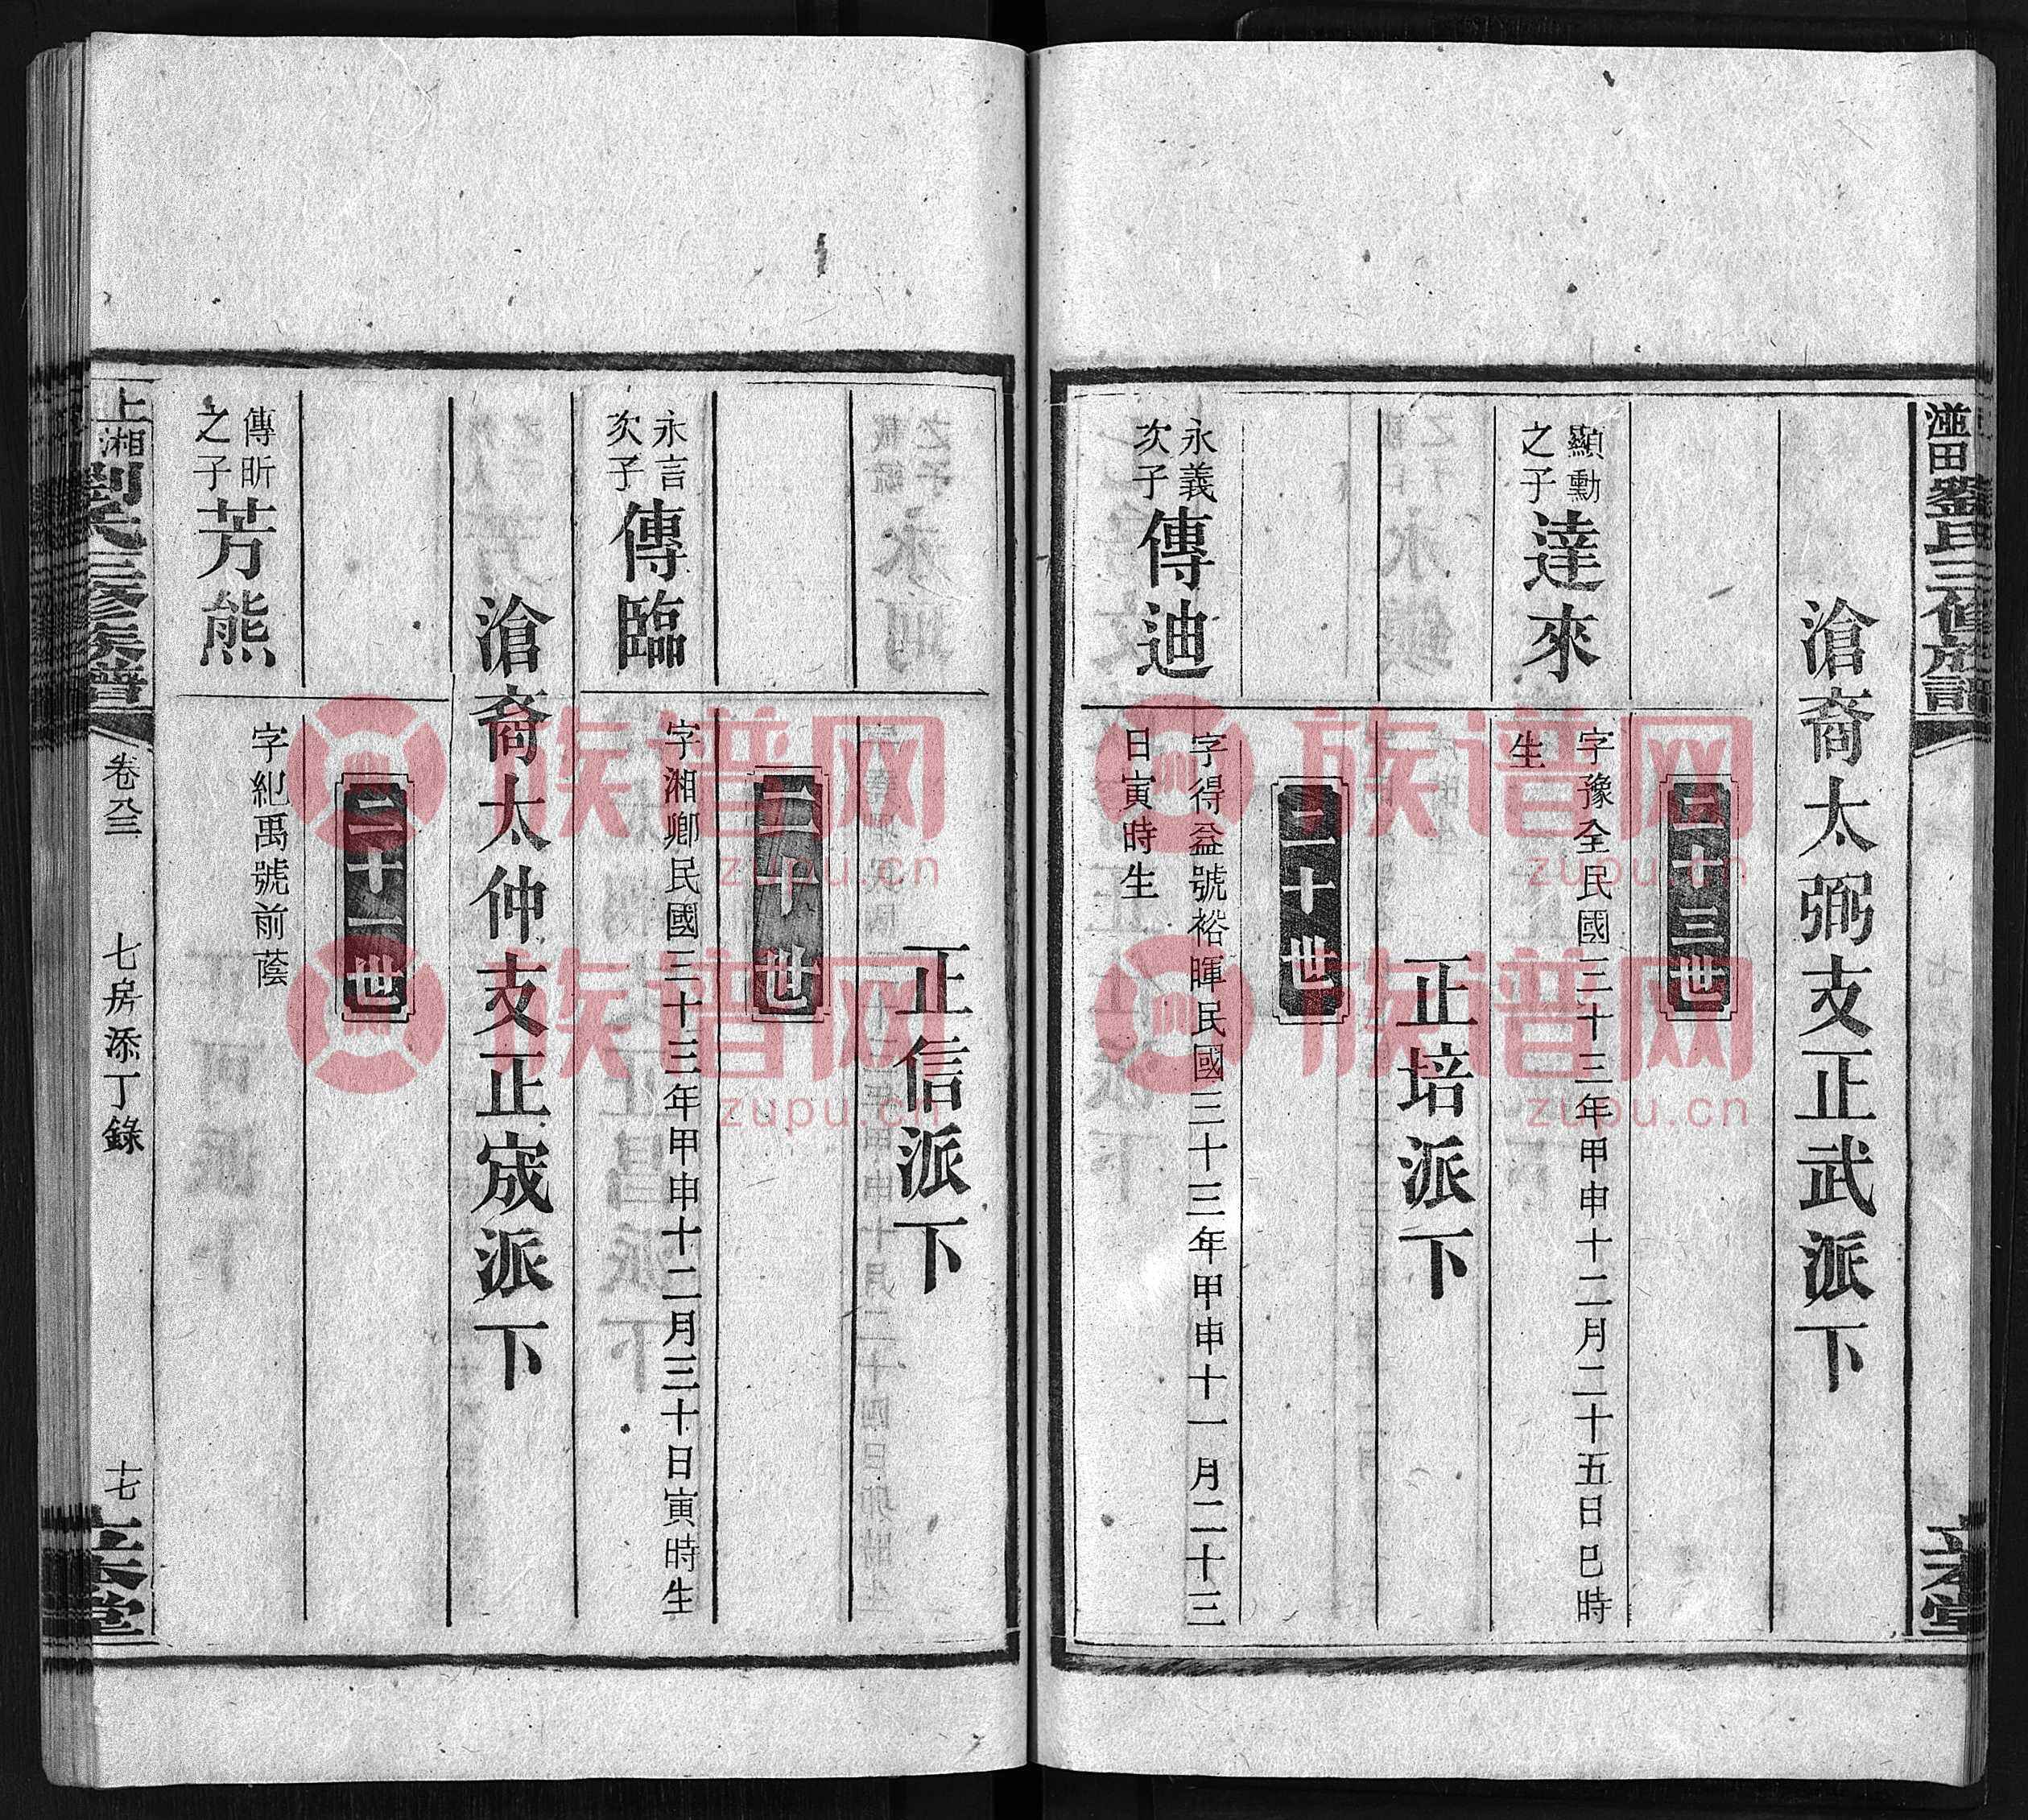 湴田劉氏三修族譜
立本堂
滄裔太弼支正武派下
二十三世
顯勳之子
達來
字豫全民國三十三年甲申十二月二十五日巳時
生
正培派下
二十世
永義次子
傳迪
字得益號裕暉民國三十三年甲申十一月二十三
日寅時生
正信派下
二十世
永言次子
傳臨
字湘卿民國三十三年甲申十二月三十日寅時生
滄裔太仲支正宬派下
二十一世
傳昕之子
芳熊
字紀禹號前蔭
上湘劉氏三修族譜
卷八三
七房添丁錄
十七
立本堂
族谱网
zupu.cn
族谱网
zupu.cn
族谱网
zupu.cn
族谱网
zupu.cn